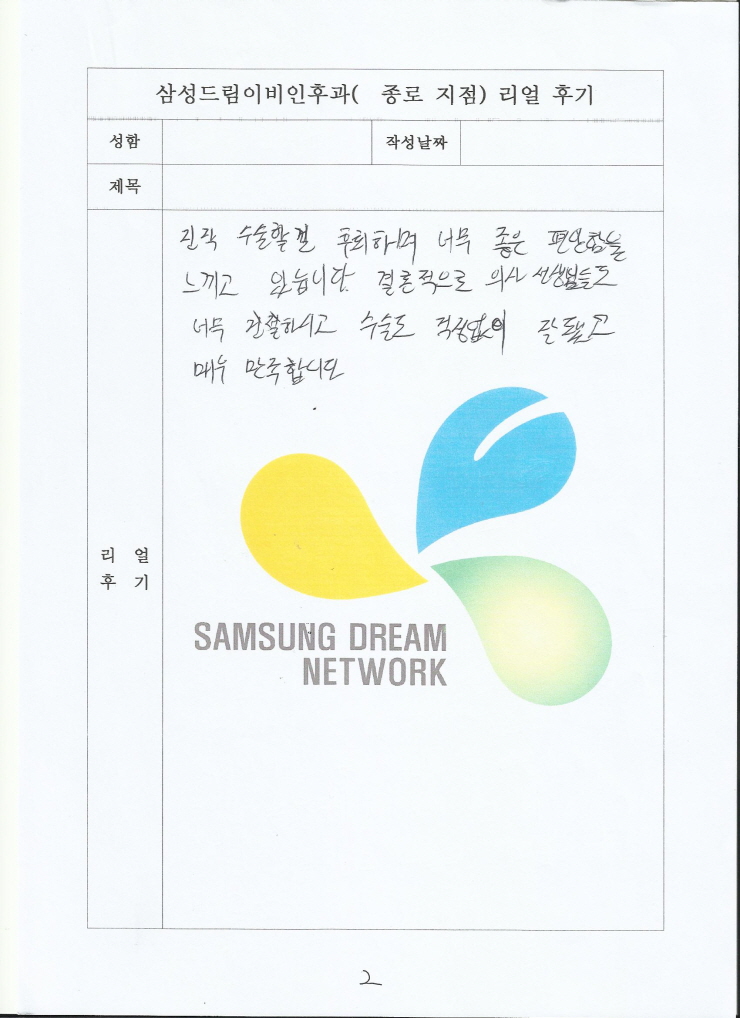 삼성드림이비인후과( 종로 지점) 리얼 후기
성함 작성날짜
제목
진작 수술할껄 후회하며 너무 좋은 편안함을
느끼고 있습니다. 결론적으로 의사 선생님들도
너무 하시고 수술도 걱정없이 잘됐고
매우 만족합니다
리 얼
후 기
SAMSUNG DREAM
NETWORK
2